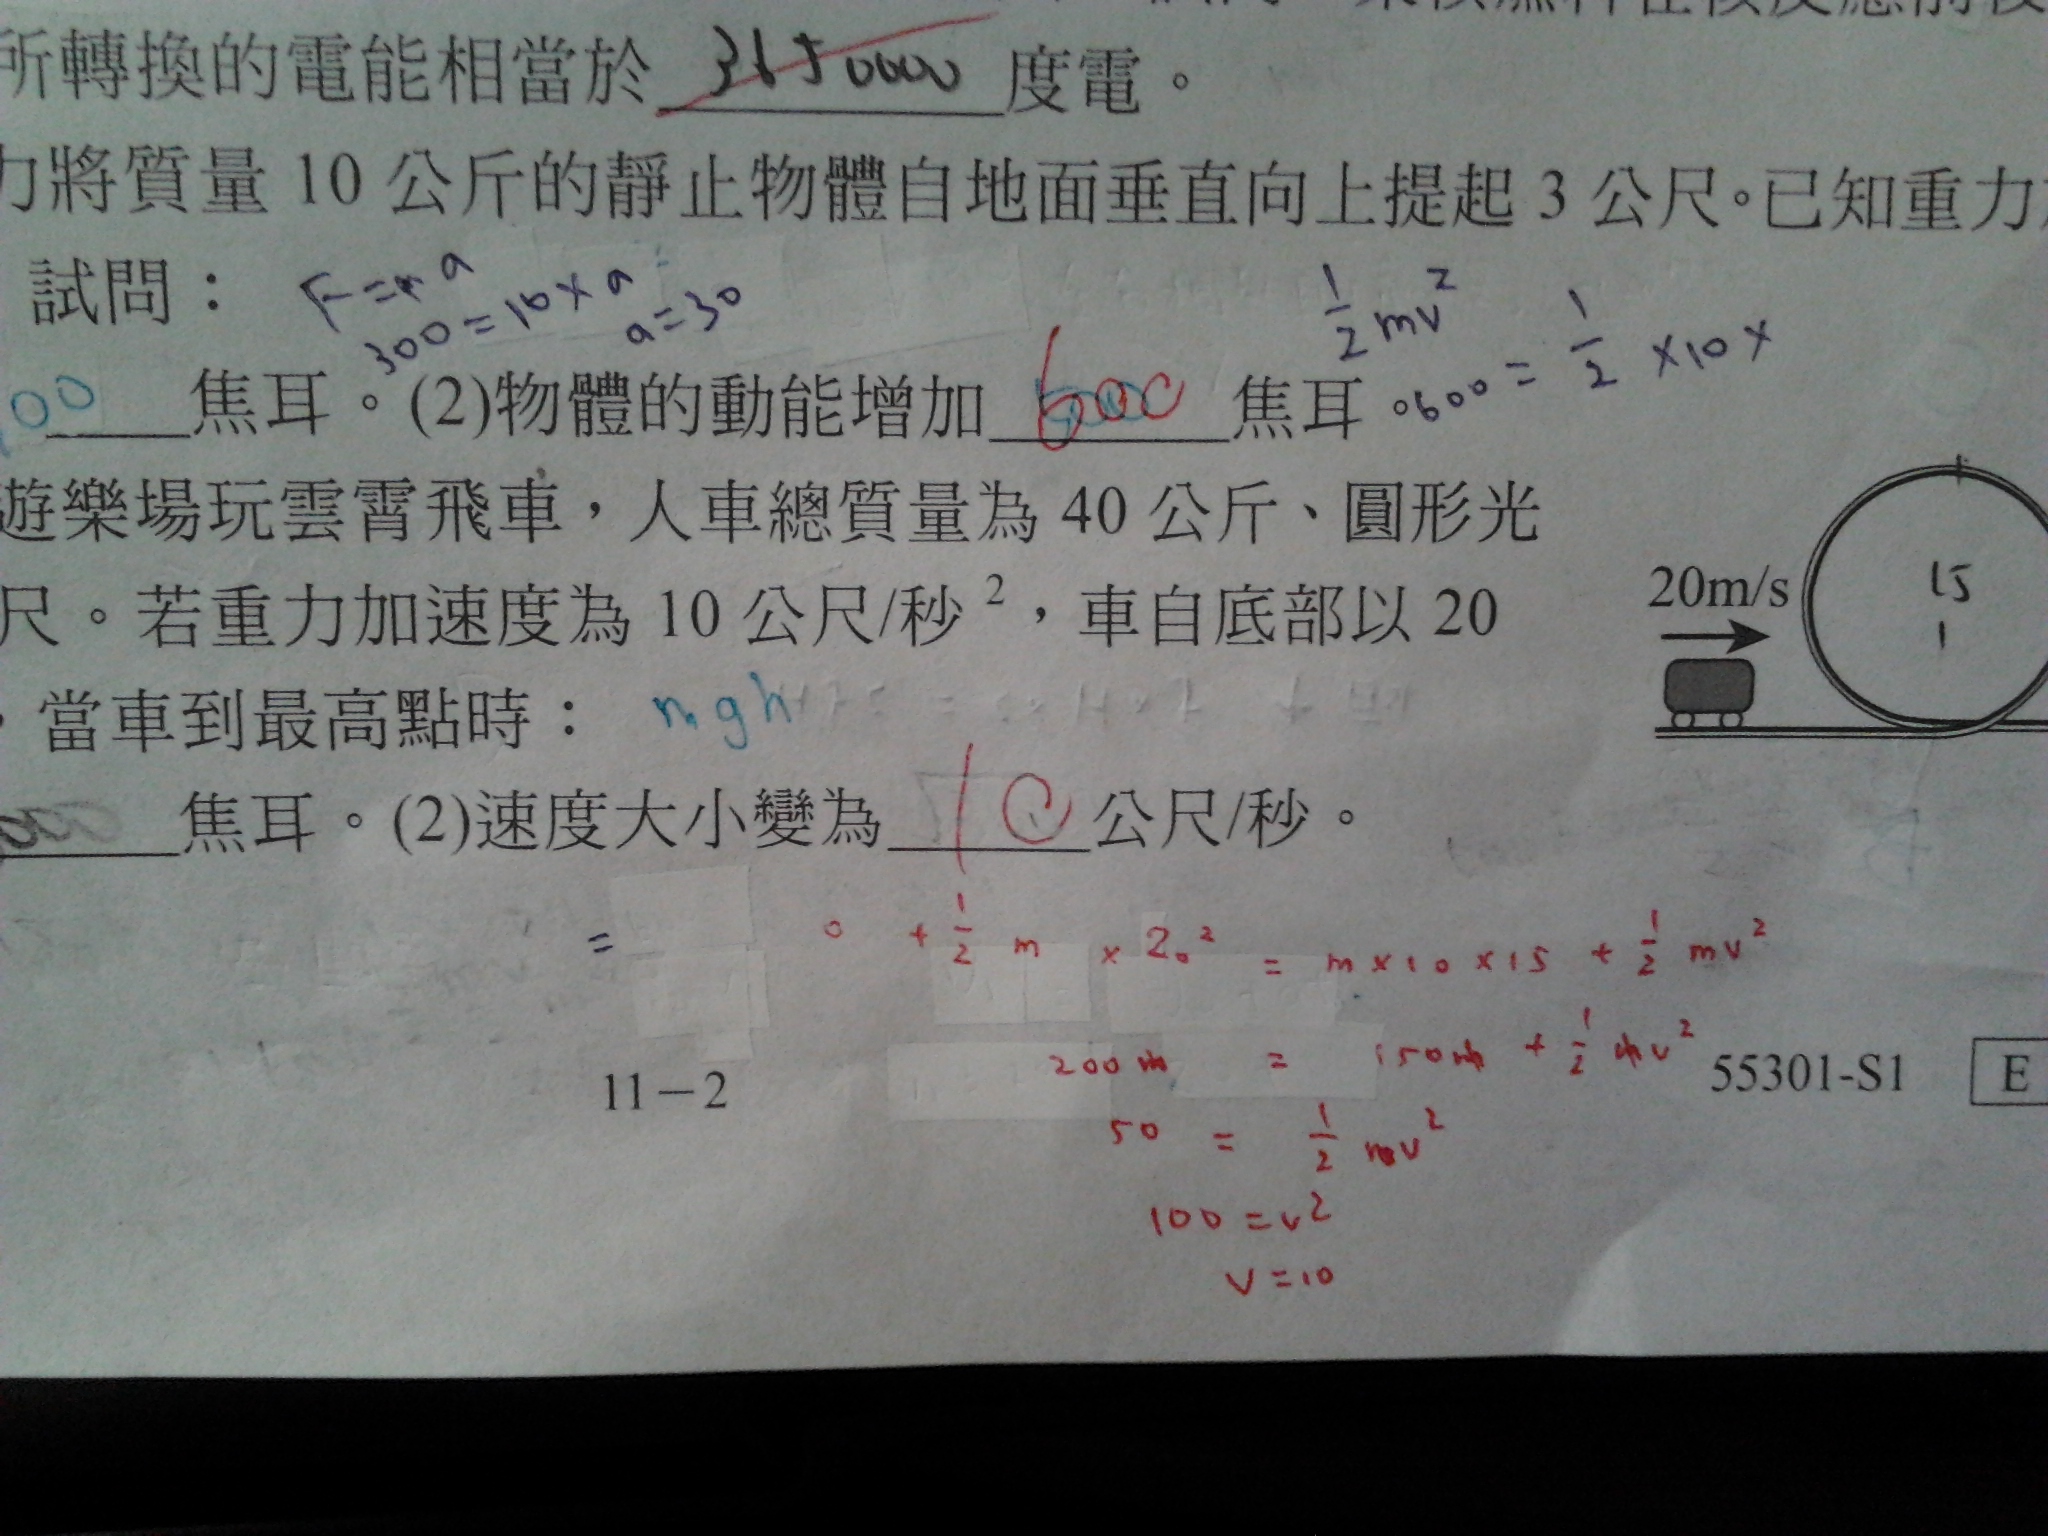 所轉換的電能相當於 3650000 度電。
力將質量 10 公斤的靜止物體自地面垂直向上提起 3 公尺。已知重力
試問：
F=ma
300=10×a
a=30
1/2 mv²
600 = 1/2 ×10×
00 焦耳。(2)物體的動能增加 600 焦耳。
遊樂場玩雲霄飛車，人車總質量為 40 公斤、圓形光
尺。若重力加速度為 10 公尺/秒²，車自底部以 20
，當車到最高點時： mgh
焦耳。(2)速度大小變為 10 公尺/秒。
20m/s
15
= 0 + 1/2 m × 20² = m×10×15 + 1/2 mv²
200m = 150m + 1/2 mv²
50 = 1/2 mv²
100 = v²
v = 10
11－2
55301-S1
E